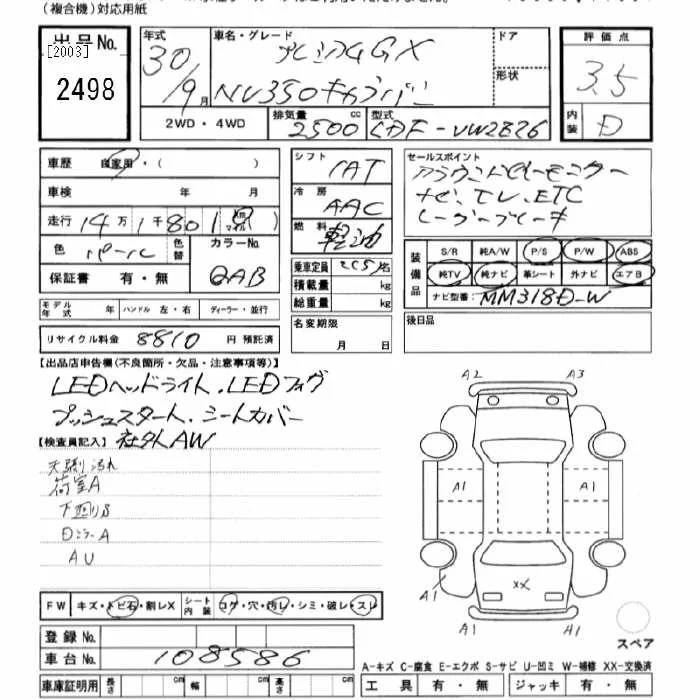 (複合機)対応用紙
出品No.
[2003]
2498
年式 30/9月
車名・グレード プレミアムGX
NV350キャラバン
ドア
形状
評価点 3.5
内装 D
2WD・4WD
排気量 2500cc
型式 CDF-VW2E26
車歴 自家用・( )
車検 年 月
走行 14万1千801 km マイル
色 パール 色替
カラーNo. QAB
保証書 有・無
シフト 1AT
冷房 AAC
燃料 軽油
乗車定員 2(5)名
積載量 kg
総重量 kg
セールスポイント
アラウンドビューモニター
ナビ、TV、ETC
装備品
S/R 純A/W P/S P/W ABS
純TV 純ナビ 革シート 外ナビ エアB
ナビ型番: MM318D-W
モデル年式 年 ハンドル 左・右 ディーラー・並行
名変期限 月 日
後日品
リサイクル料金 8810 円 預託済
【出品店申告欄(不良箇所・欠品・注意事項等)】
LEDヘッドライト、LEDフォグ
プッシュスタート、シートカバー
【検査員記入】 社外AW
天張り汚れ
荷室A
下廻りS
DミラーA
AU
A2 A3
A1 A1
XX
A1
A1 A1
スペア
FW キズ・トビ石・割レX
シート内装 コゲ・穴・汚レ・シミ・破レ・スレ
登録No.
車台No. 108586
A-キズ C-腐食 E-エクボ S-サビ U-凹ミ W-補修 XX-交換済
車庫証明用 長さ cm 幅 cm 高さ cm
工具 有・無 ジャッキ 有・無